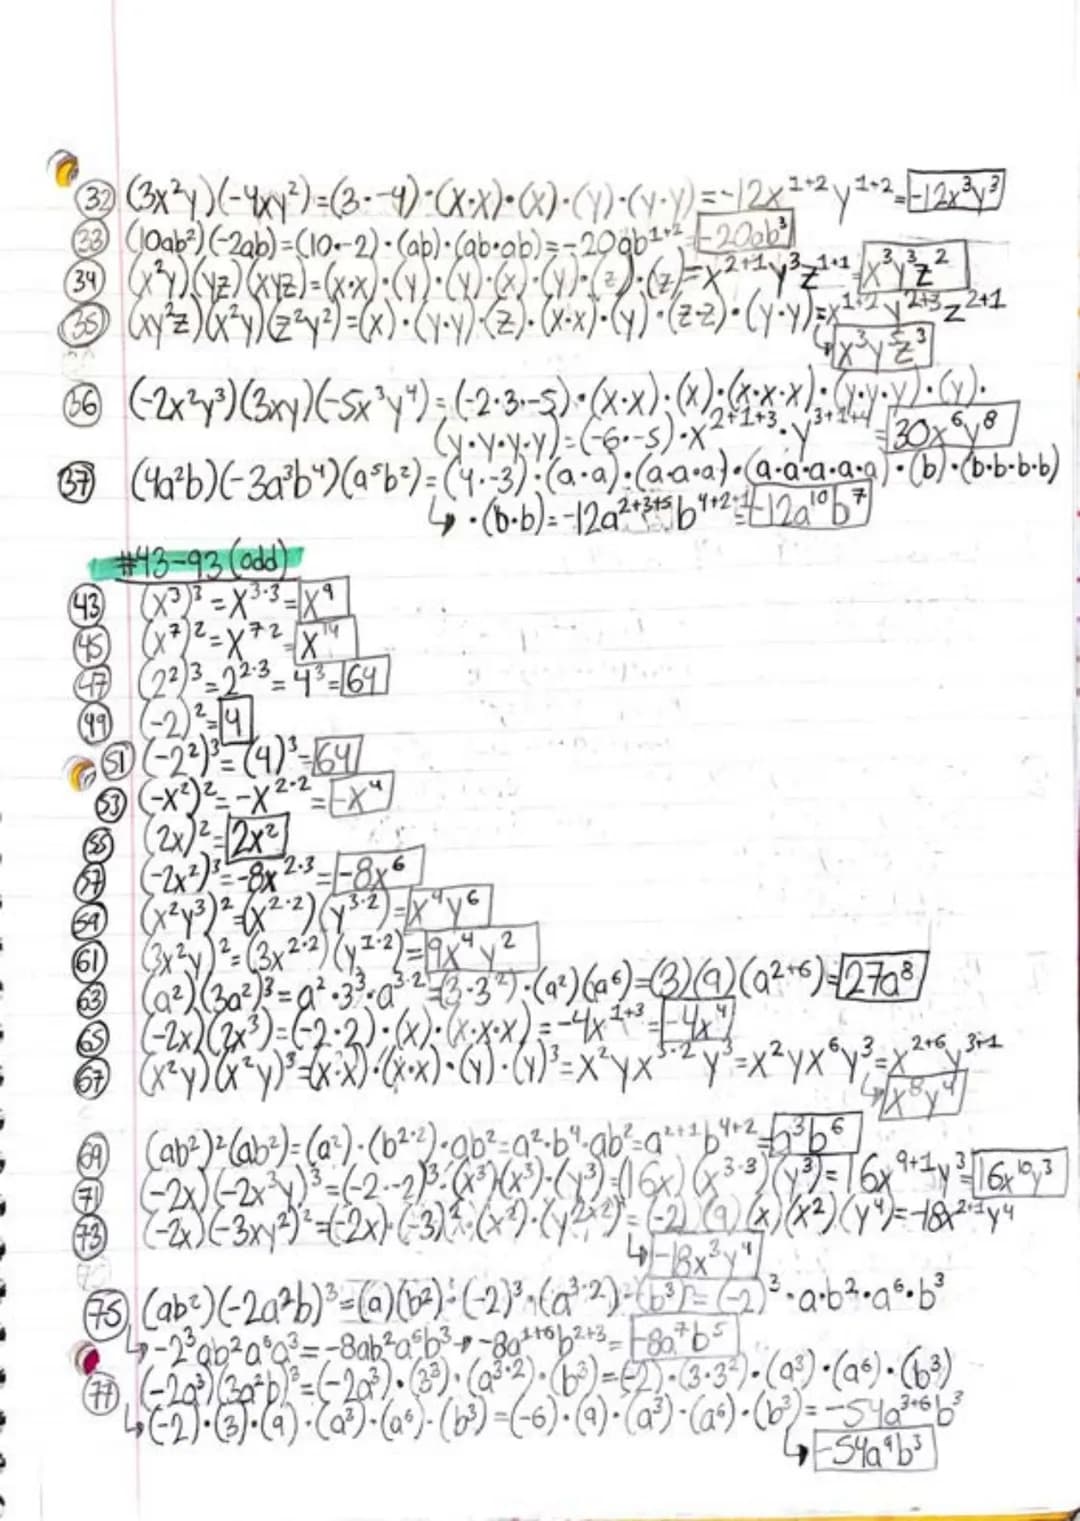 32 (3x²y)(-4xy²)=(3·-4)·(x·x)·(x)·(y)·(y·y)=-12x¹⁺²y¹⁺²=-12x³y³
33 (10ab²)(-2ab)=(10·-2)·(ab)·(ab·ab)=-20ab¹⁺²=-20ab³
34 (x²y)(yz)(xyz)=(x·x)·(y)·(y)·(x)·(y)·(z)·(z)=x²⁺¹y³z¹⁺¹ x³y³z²
35 (xy²z)(x²y)(z²y²)=(x)·(y·y)·(z)·(x·x)·(y)·(z·z)·(y·y)=x¹⁺²y²⁺³z²⁺¹
↳x³y⁵z³
36 (-2x²y³)(3xy)(-5x³y⁴)=(-2·3·-5)·(x·x)·(x)·(x·x·x)·(y·y·y)·(y)·
(y·y·y·y)=(-6·-5)·x²⁺¹⁺³·y³⁺¹⁺⁴=30x⁶y⁸
37 (4a²b)(-3a³b⁴)(a⁵b²)=(4·-3)·(a·a)·(a·a·a)·(a·a·a·a·a)·(b)·(b·b·b·b)
↳·(b·b)=-12a²⁺³⁺⁵b⁴⁺²⁺¹=-12a¹⁰b⁷
#43-93 (odd)
43 (x³)³=x³·³=x⁹
45 (x⁷)²=x⁷·²=x¹⁴
47 (2²)³=2²·³=4³=64
49 (-2)²=4
51 (-2²)³=(4)³=64
53 (-x²)²=-x²·²=-x⁴
55 (2x)²=2x²
57 (-2x²)³=-8x²·³=-8x⁶
59 (x²y³)²=(x²·²)(y³·²)=x⁴y⁶
61 (3x²y)²=(3x²·²)(y¹·²)=9x⁴y²
63 (a²)(3a²)³=a²·3³·a³·²=(3·3²)·(a²)(a⁶)=(3)(9)(a²⁺⁶)=27a⁸
65 (-2x)(2x³)=(-2·2)·(x)·(x·x·x)=-4x¹⁺³=-4x⁴
67 (x²y)(x²y)³=(x·x)·(x·x)·(y)·(y)³=x²yx³·²y³=x²yx⁶y³=x²⁺⁶y³⁺¹
↳x⁸y⁴
69 (ab²)²(ab²)=(a²)·(b²·²)·ab²=a²·b⁴·ab²=a²⁺¹b⁴⁺²=a³b⁶
71 (-2x)(-2x³y)³=(-2·-2)³·(x³)(x³)·(y³)=(16x)(x³·³)(y³)=16x⁹⁺¹y³=16x¹⁰y³
73 (-2x)(-3xy²)²=(-2x)·(-3)²·(x²)·(y²ˣ²)=(-2)(9)(x)(x²)(y⁴)=-18x²⁺¹y⁴
↳-18x³y⁴
75 (ab²)(-2a²b)³=(a)(b²)·(-2)³·(a³·²)·(b³)=(-2)³·a·b²·a⁶·b³
↳-2³ab²a⁶a³=-8ab²a⁶b³→-8a¹⁺⁶b²⁺³=-8a⁷b⁵
77 (-2a³)(3a²b)³=(-2a³)·(3³)·(a³·²)·(b³)=(-2)·(3·3²)·(a³)·(a⁶)·(b³)
↳(-2)·(3)·(9)·(a³)·(a⁶)·(b³)=(-6)·(9)·(a³)·(a⁶)·(b³)=-54a³⁺⁶b³
↳-54a⁹b³